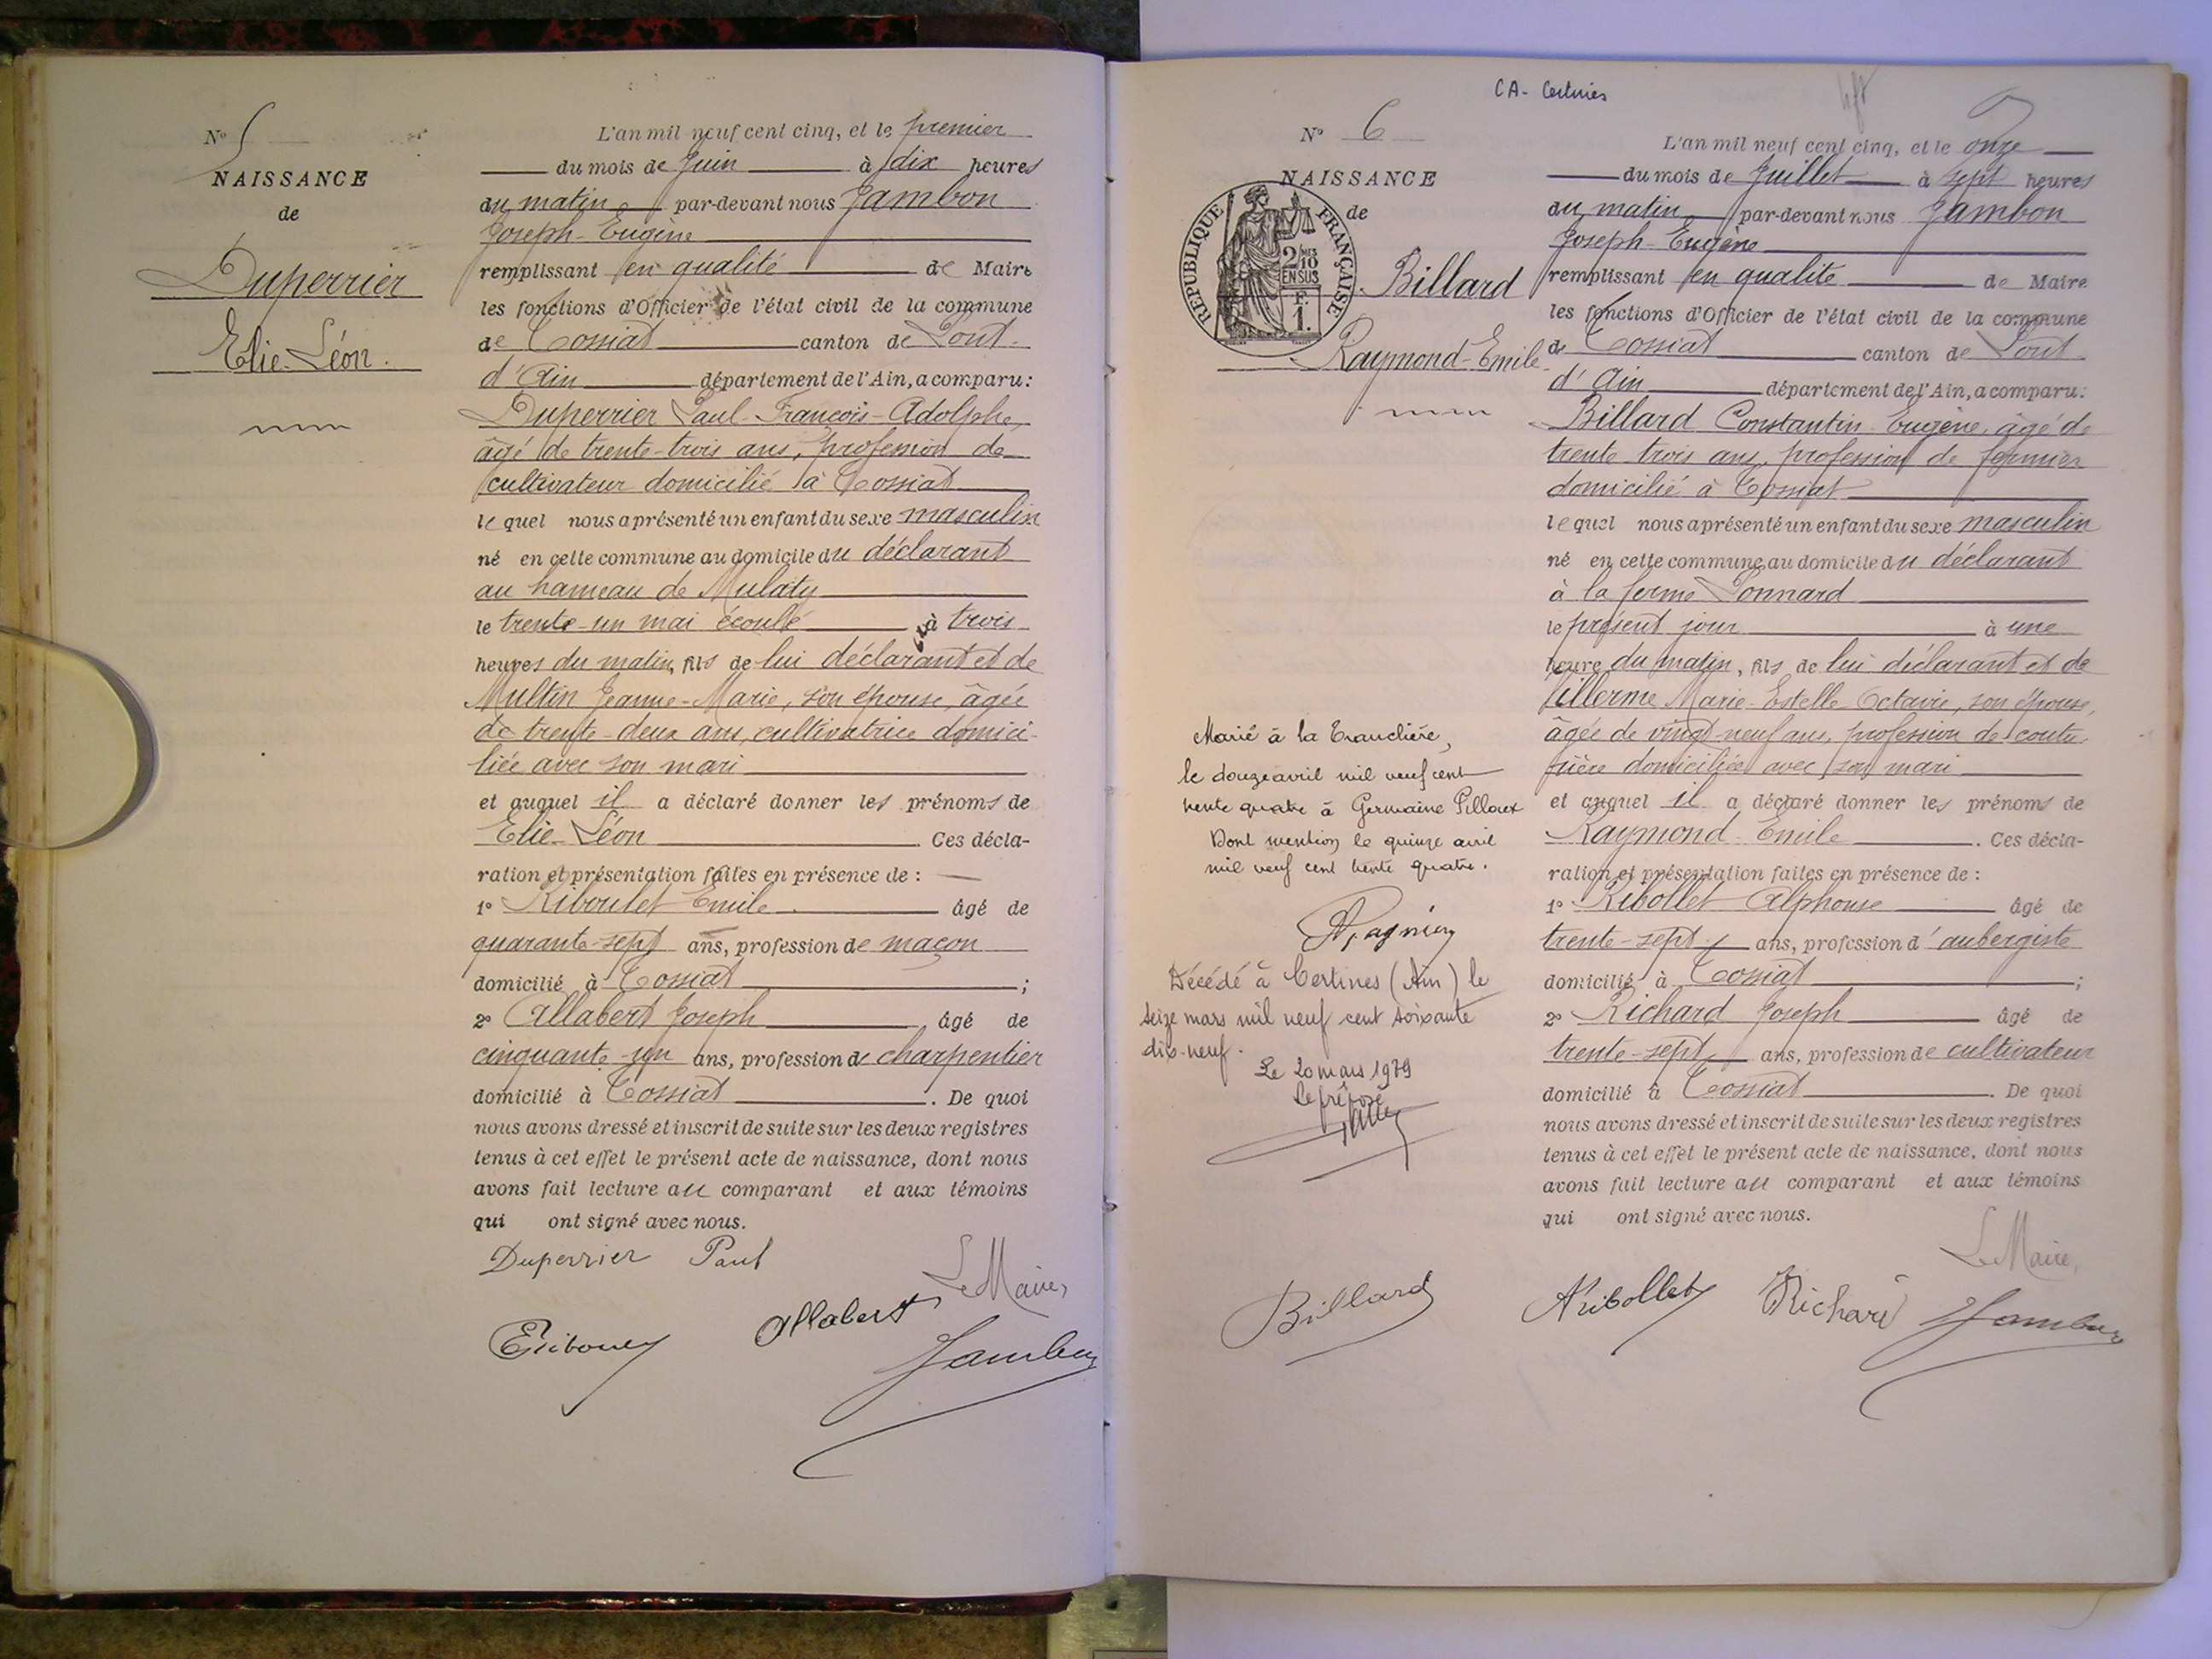 N° 5
NAISSANCE
de
Duperrier
Elie-Léon.
L'an mil neuf cent cinq, et le premier
du mois de Juin à dix heures
du matin par-devant nous Jambon
Joseph-Eugène
remplissant en qualité de Maire
les fonctions d'Officier de l'état civil de la commune
de Tossiat canton de Pont-
d'Ain département de l'Ain, a comparu:
Duperrier Paul-François-Adolphe,
âgé de trente-trois ans, profession de
cultivateur domicilié à Tossiat
lequel nous a présenté un enfant du sexe masculin
né en cette commune au domicile du déclarant
au hameau de Mulaty
le trente-un mai écoulé à trois
heures du matin, fils de lui déclarant et de
Multin Jeanne-Marie, son épouse, âgée
de trente-deux ans, cultivatrice domici-
liée avec son mari
et auquel il a déclaré donner les prénoms de
Elie-Léon. Ces décla-
ration et présentation faites en présence de :
1° Riboulet Emile âgé de
quarante-sept ans, profession de maçon
domicilié à Tossiat ;
2° Allabert Joseph, âgé de
cinquante-un ans, profession de charpentier
domicilié à Tossiat. De quoi
nous avons dressé et inscrit de suite sur les deux registres
tenus à cet effet le présent acte de naissance, dont nous
avons fait lecture au comparant et aux témoins
qui ont signé avec nous.
Duperrier Paul
Le Maire,
Allabert
Jambon
CA- Certines
N° 6
NAISSANCE
de
REPUBLIQUE FRANÇAISE
2/10
EN SUS
F.
1.
Billard
Raymond-Emile
L'an mil neuf cent cinq, et le onze
du mois de Juillet à sept heures
du matin par-devant nous Jambon
Joseph-Eugène
remplissant en qualité de Maire
les fonctions d'Officier de l'état civil de la commune
de Tossiat canton de Pont
d'Ain département de l'Ain, a comparu:
Billard Constantin Eugène, âgé de
trente trois ans, profession de fermier
domicilié à Tossiat
lequel nous a présenté un enfant du sexe masculin
né en cette commune au domicile du déclarant
à la ferme Ponnard
le présent jour à une
heure du matin, fils de lui déclarant et de
Villerme Marie-Estelle Octavie, son épouse,
âgée de vingt-neuf ans, profession de coutu
rière domiciliée avec son mari
et auquel il a déclaré donner les prénoms de
Raymond-Emile. Ces décla-
ration et présentation faites en présence de :
1° Ribollet Alphonse âgé de
trente-sept ans, profession d'aubergiste
domicilié à Tossiat ;
2° Richard Joseph âgé de
trente-sept ans, profession de cultivateur
domicilié à Tossiat. De quoi
nous avons dressé et inscrit de suite sur les deux registres
tenus à cet effet le présent acte de naissance, dont nous
avons fait lecture au comparant et aux témoins
qui ont signé avec nous.
Marié à la Tranclière,
le douze avril mil neuf cent
trente quatre à Germaine Pilloux
Dont mention le quinze avril
mil neuf cent trente quatre.
Décédé à Certines (Ain) le
seize mars mil neuf cent soixante
dix-neuf.
Le 20 mars 1979
Le préposé
Le Maire,
Billard
A Ribollet
Richard
Jambon